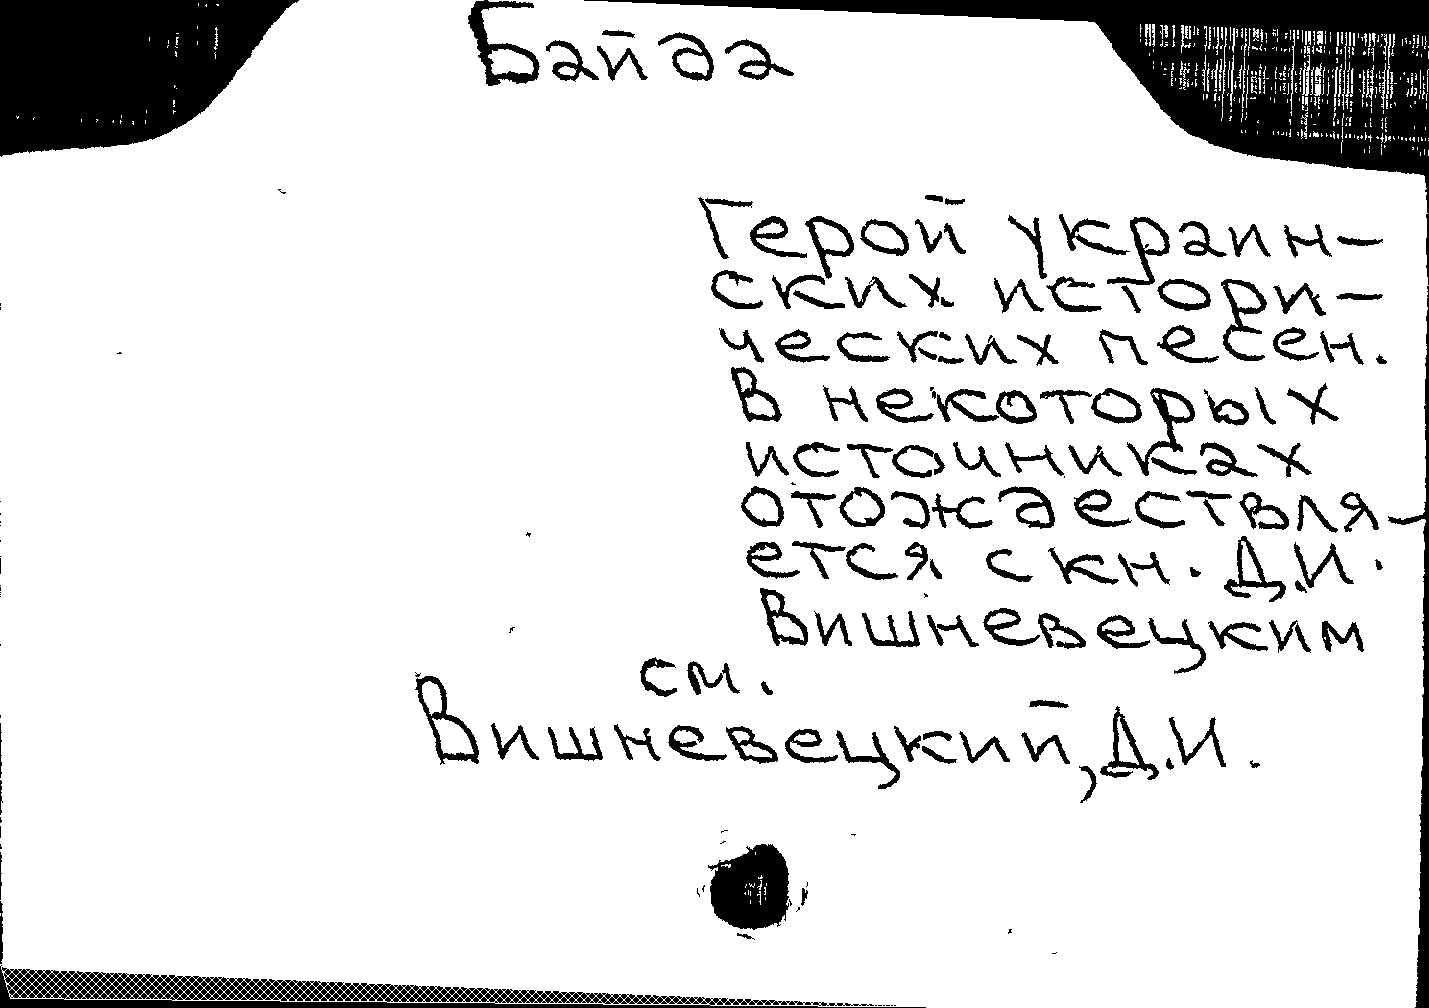 Байда
Герой украин-
ских истори-
ческих песен.
В некоторых
источниках
отождествля-
ется с кн. Д.И.
Вишневецким
см.
Вишневецкий, Д.И.